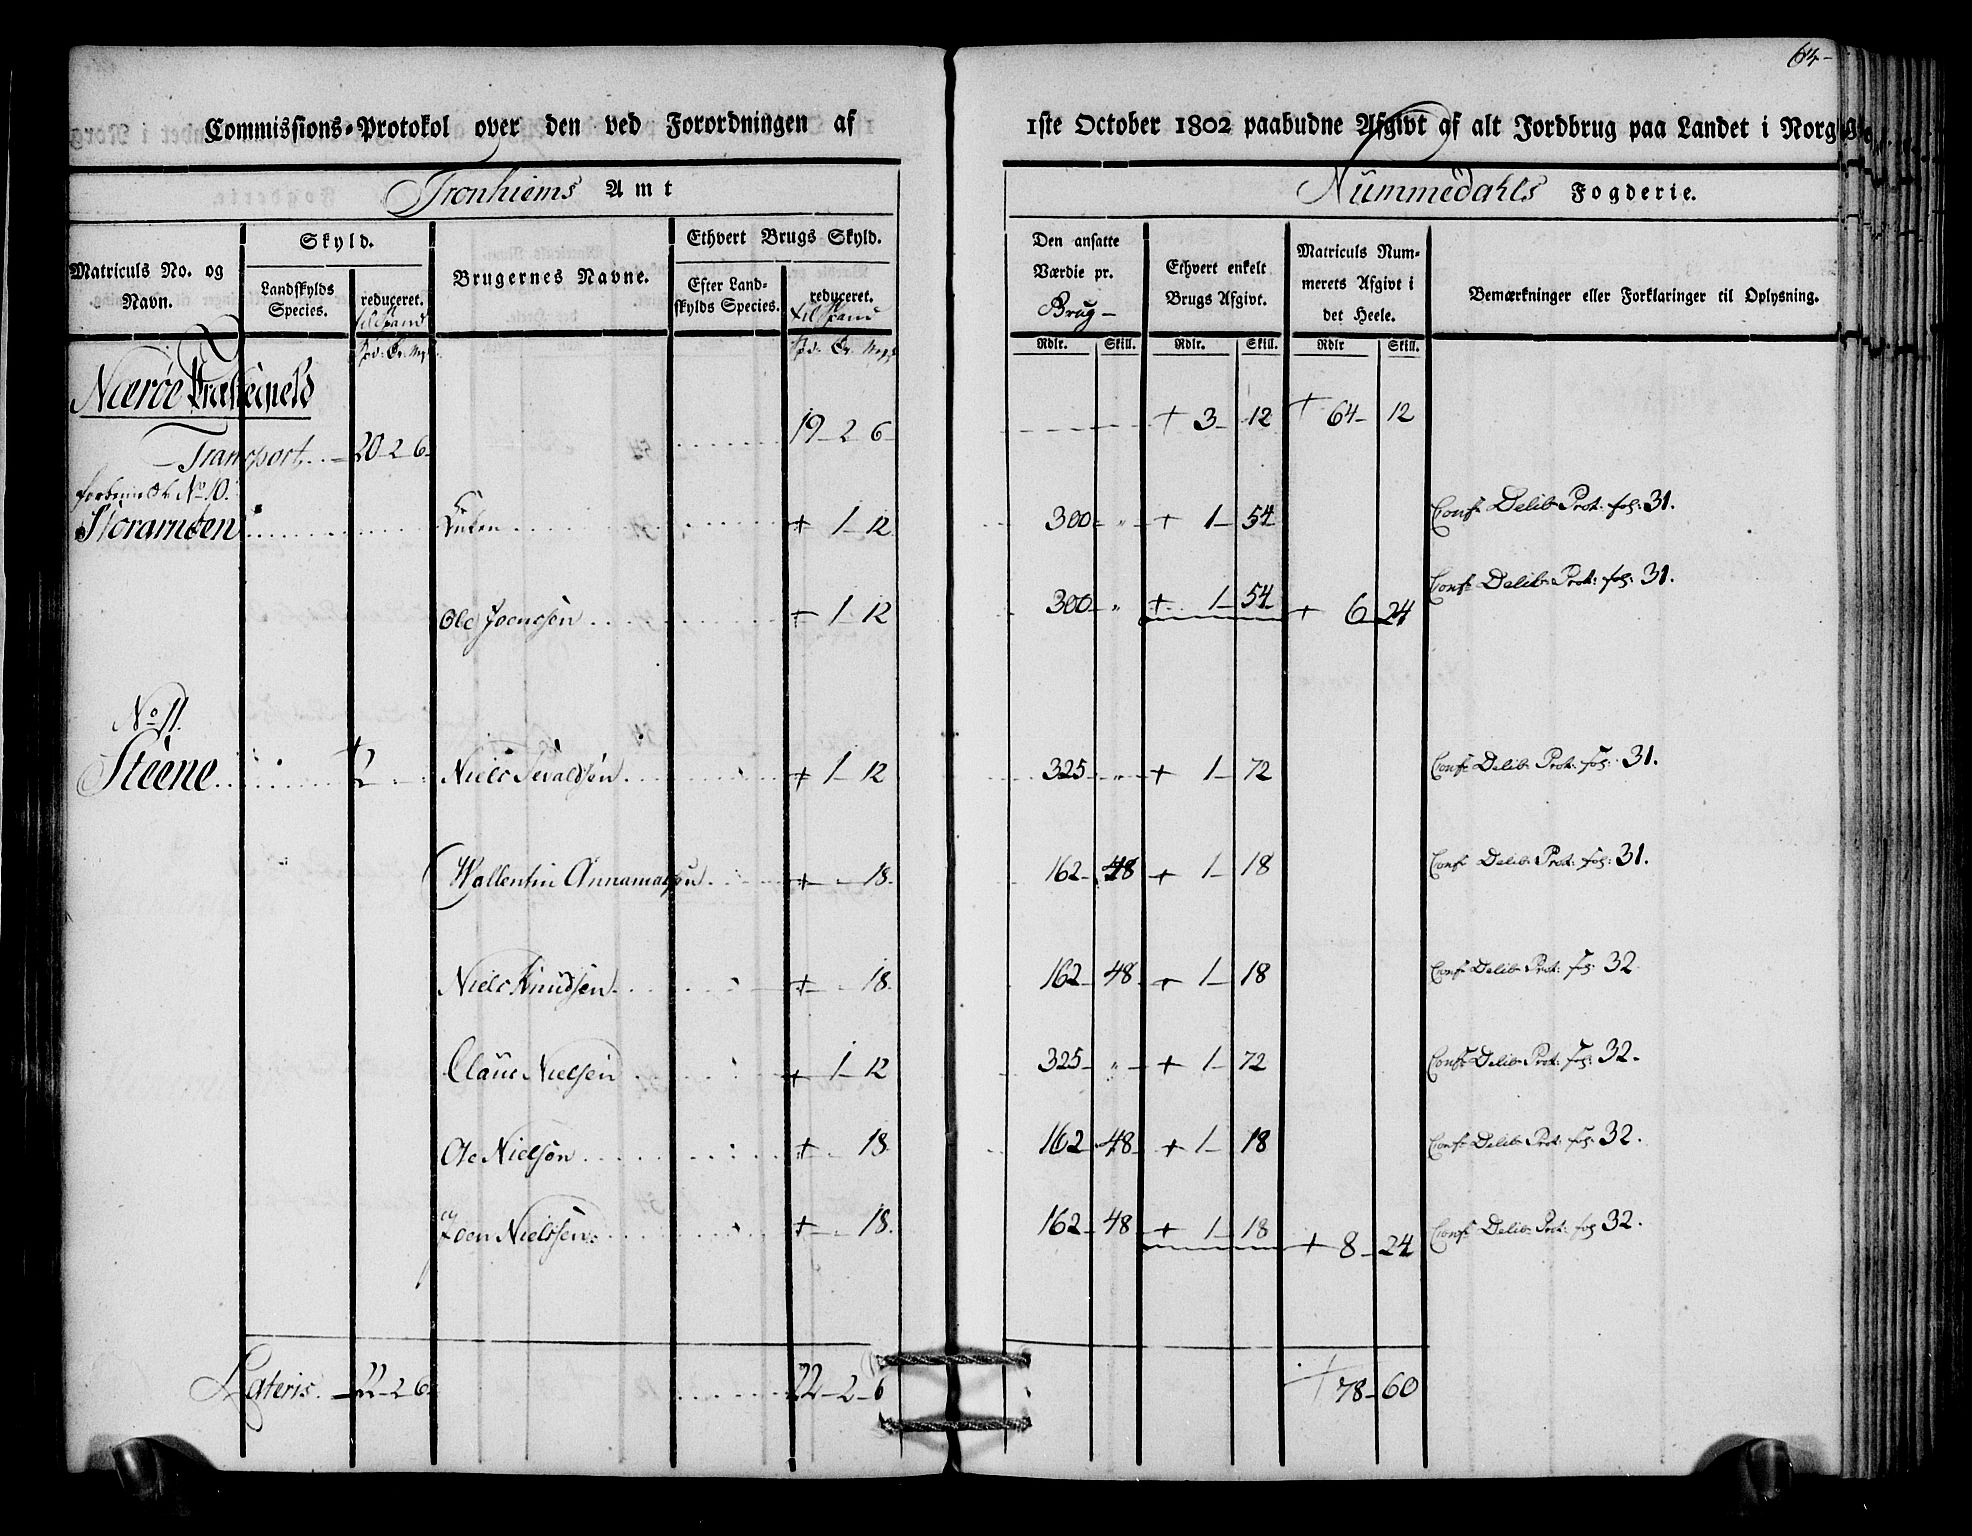 64-
Commissions-Protokol over den ved Forordningen af 1ste October 1802 paabudne Afgivt af alt Jordbrug paa Landet i Norg
Tronhiems Amt
Nummedahls Fogderie.
Matriculs No. og Navn.
Skyld.
Landskylds Species.
reduceret.
til Spand
Spd: Ör. Mrk:
Brugernes Navne.
Ethvert Brugs Skyld.
Efter Landskylds Species.
reduceret.
til Spand
Spd: Ör. Mrk:
Den ansatte Værdie pr.
Brug-
Rdlr. Skill.
Ethvert enkelt Brugs Afgivt.
Rdlr. Skill.
Matriculs Nummerets Afgivt i det Heele.
Rdlr Skill.
Bemærkninger eller Forklaringer til Oplysning.
Nærøe Præstegield
Transport 20-2-6 19-2-6 3-12 64-12
No 10.
Storamden 1-12 300-" 1-54 Conf. Delib. Prot: fol: 31.
Ole Joensen 1-12 300-" 1-54 6-24 Conf. Delib. Prot: fol: 31.
No 11.
Steene 2 Niels Sevaldsøn 1-12 325-" 1-72 Conf. Delib. Prot: fol: 31.
Wallentin Annamatsøn 18. 162-48 1-18 Conf. Delib. Prot: fol: 31.
Niels Knudsen 18. 162-48 1-18 Conf. Delib. Prot: fol: 32
Claus Nielsen 1-12 325-" 1-72 Conf. Delib. Prot: fol: 32.
Ole Nielsøn 18. 162-48 1-18 Conf. Delib. Prot: fol: 32.
Joen Nielssen 18. 162-48 1-18 8-24 Conf. Delib. Prot: fol: 32.
Lateris 22-2-6 22-2-6 78-60